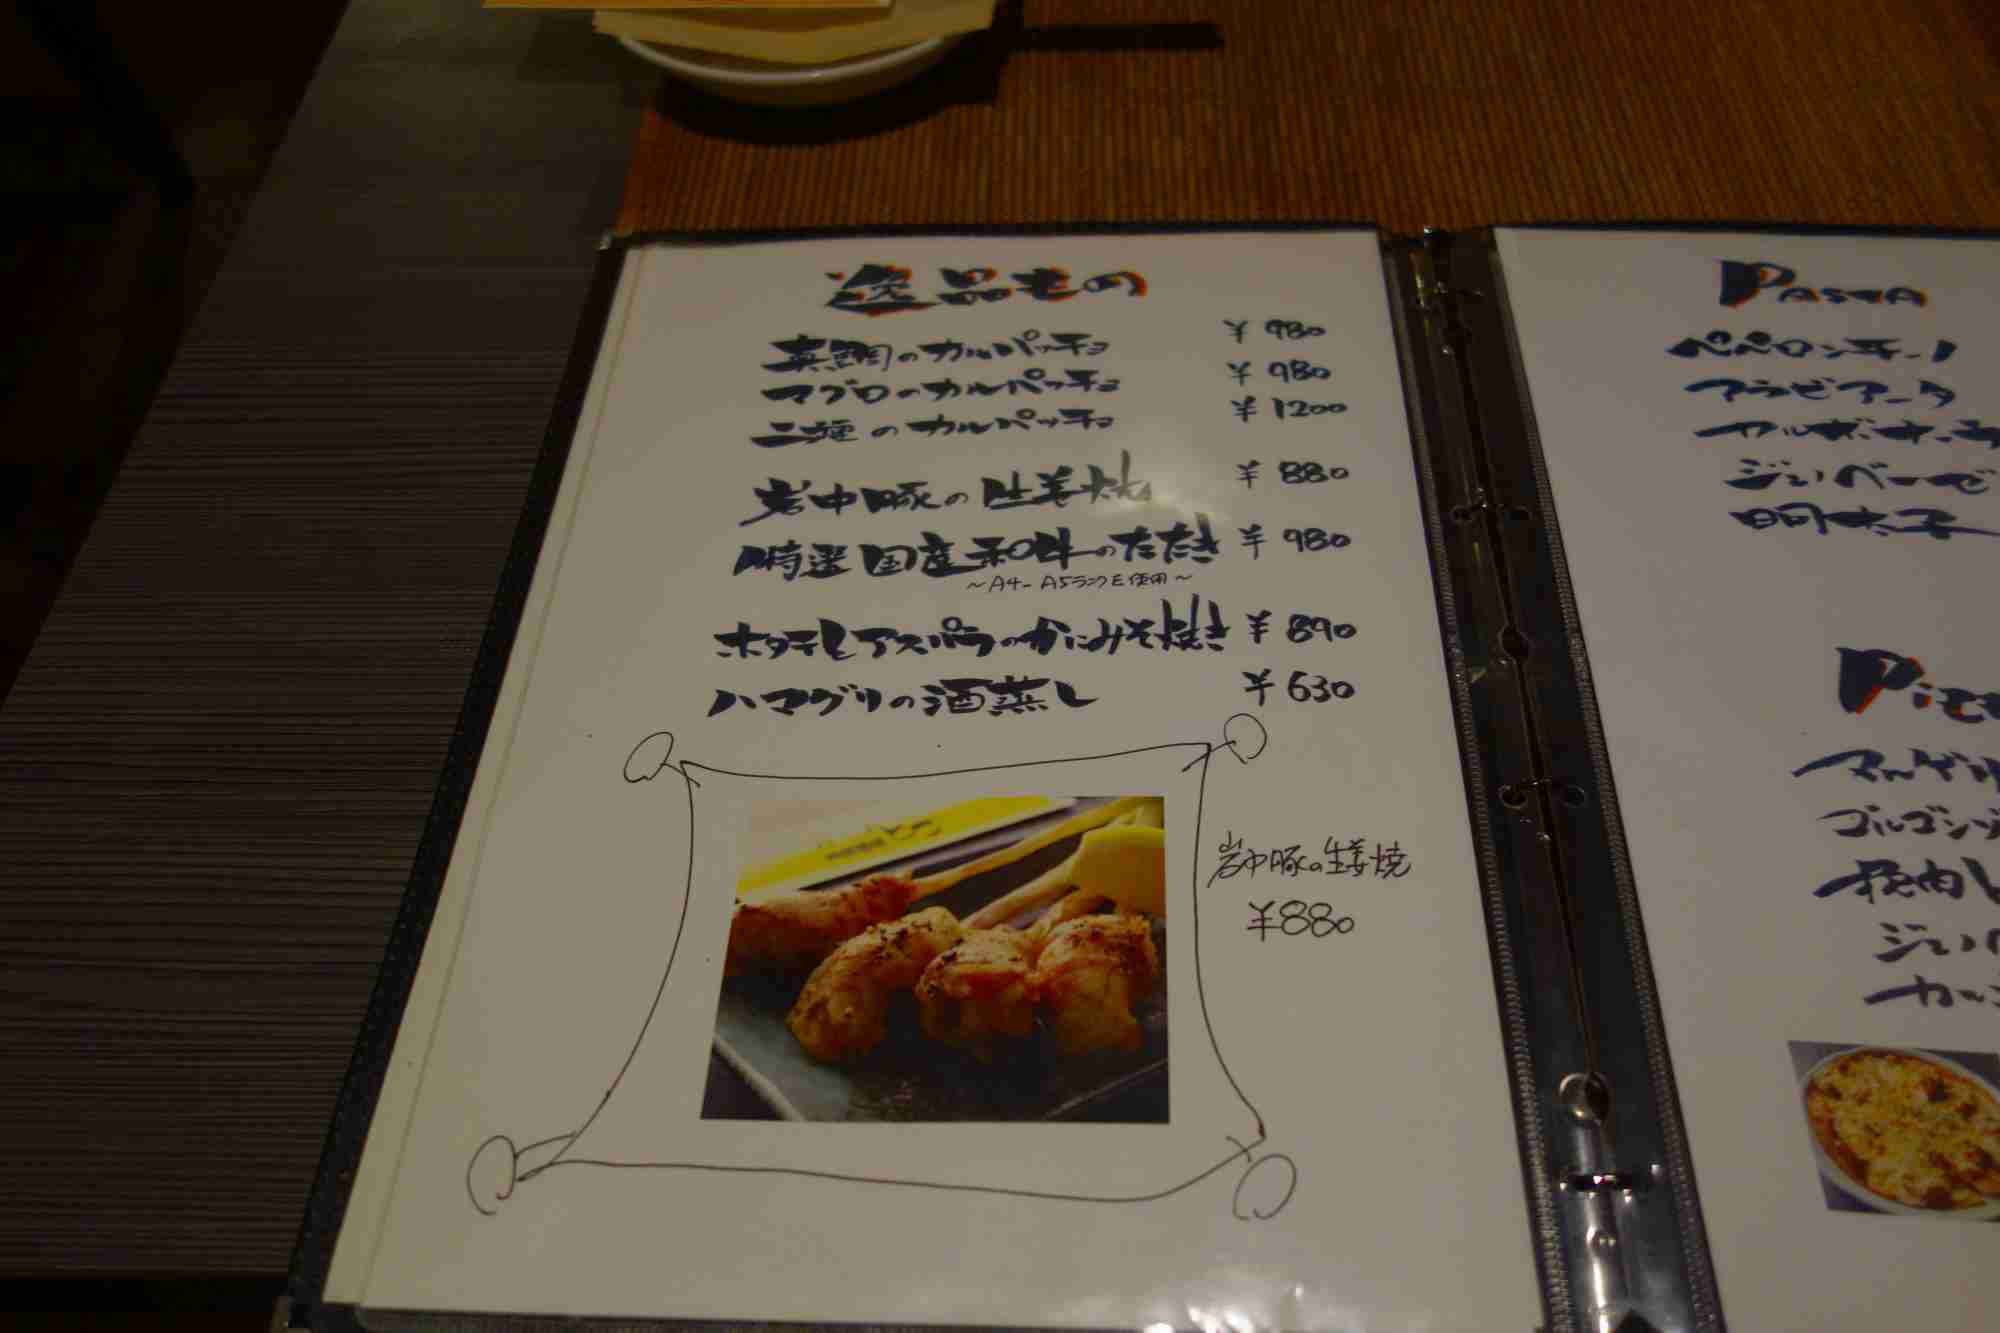 逸品もの
真鯛のカルパッチョ ¥980
マグロのカルパッチョ ¥980
二種のカルパッチョ ¥1200
岩中豚の生姜焼 ¥880
特選国産和牛のたたき ¥980
～A4-A5ランクを使用～
ホタテとアスパラのかにみそ焼き ¥890
ハマグリの酒蒸し ¥630
岩中豚の生姜焼
¥880
PASTA
ペペロンチーノ
アラビアータ
カルボナーラ
ジェノベーゼ
明太子
マルゲリ
ゴルゴンゾ
ジェノ